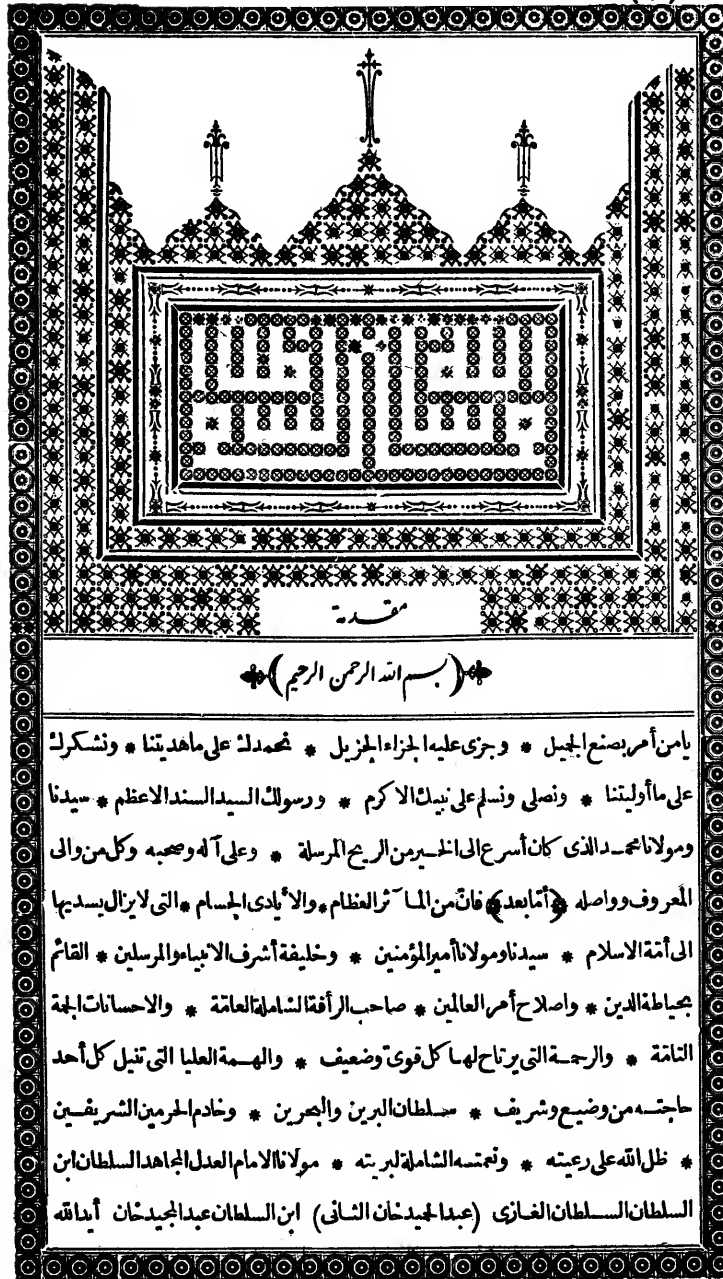 مقدمة
﴿بسم الله الرحمن الرحيم﴾
يا من أمر بصنع الجميل * وجزى عليه الجزاء الجزيل * نحمدك على ما هديتنا * ونشكرك
على ما أوليتنا * ونصلى ونسلم على نبيك الاكرم * ورسولك السيد السند الاعظم * سيدنا
ومولانا محمد الذى كان أسرع الى الخير من الريح المرسلة * وعلى آله وصحبه وكل من والى
المعروف وواصله ﴿أما بعد﴾ فان من المآثر العظام * والأيادى الجسام * التى لا يزال يسديها
الى أمة الاسلام * سيدنا ومولانا أمير المؤمنين * وخليفة أشرف الانبياء والمرسلين * القائم
بحياطة الدين * واصلاح أمر العالمين * صاحب الرأفة الشاملة العامة * والاحسانات الجمة
التامة * والرحمة التى يرتاح لها كل قوى وضعيف * والهمة العليا التى تنيل كل أحد
حاجته من وضيع وشريف * سلطان البرين والبحرين * وخادم الحرمين الشريفين
* ظل الله على رعيته * ونعمته الشاملة لبريته * مولانا الامام العدل المجاهد السلطان ابن
السلطان السلطان الغازى (عبد الحميد خان الثانى) ابن السلطان عبد المجيد خان أيد الله